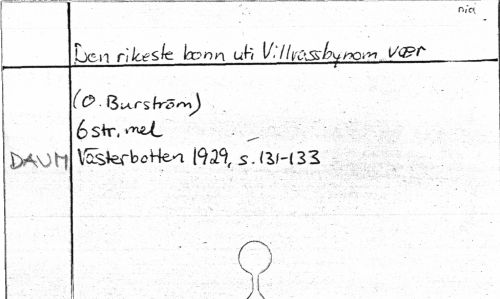 nia
Den rikeste bonn uti Villvassbynom vær
(O. Burström)
6 str, mel
DAUM Västerbotten 1929, s. 131-133